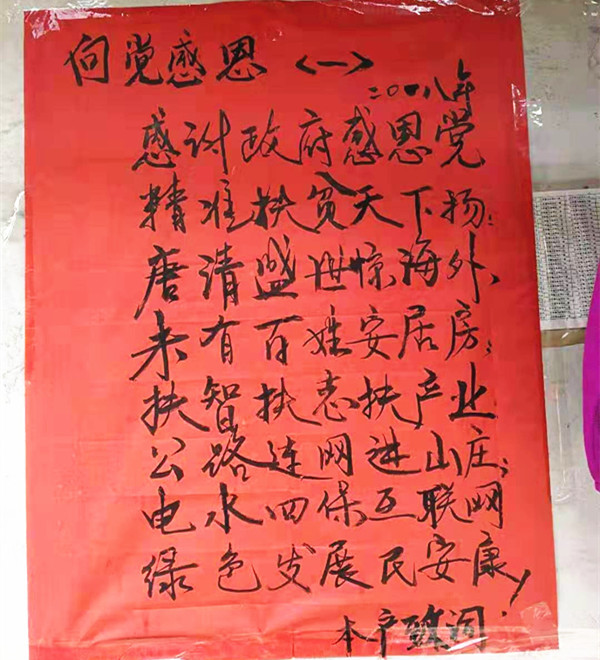 向党感恩〈一〉
二〇一八年
感讨政府感恩党
精准扶贫天下扬；
唐清盛世惊海外，
未有百姓安居房；
扶智扶志扶产业
公路连网进山庄；
电水四保互联网
绿色发展民安康！
本户致词